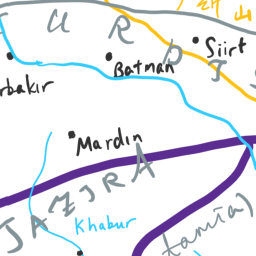 U R D I
Siirt
Batman
rbakır
Mardin
JAZIRA
Khabur
tamia)